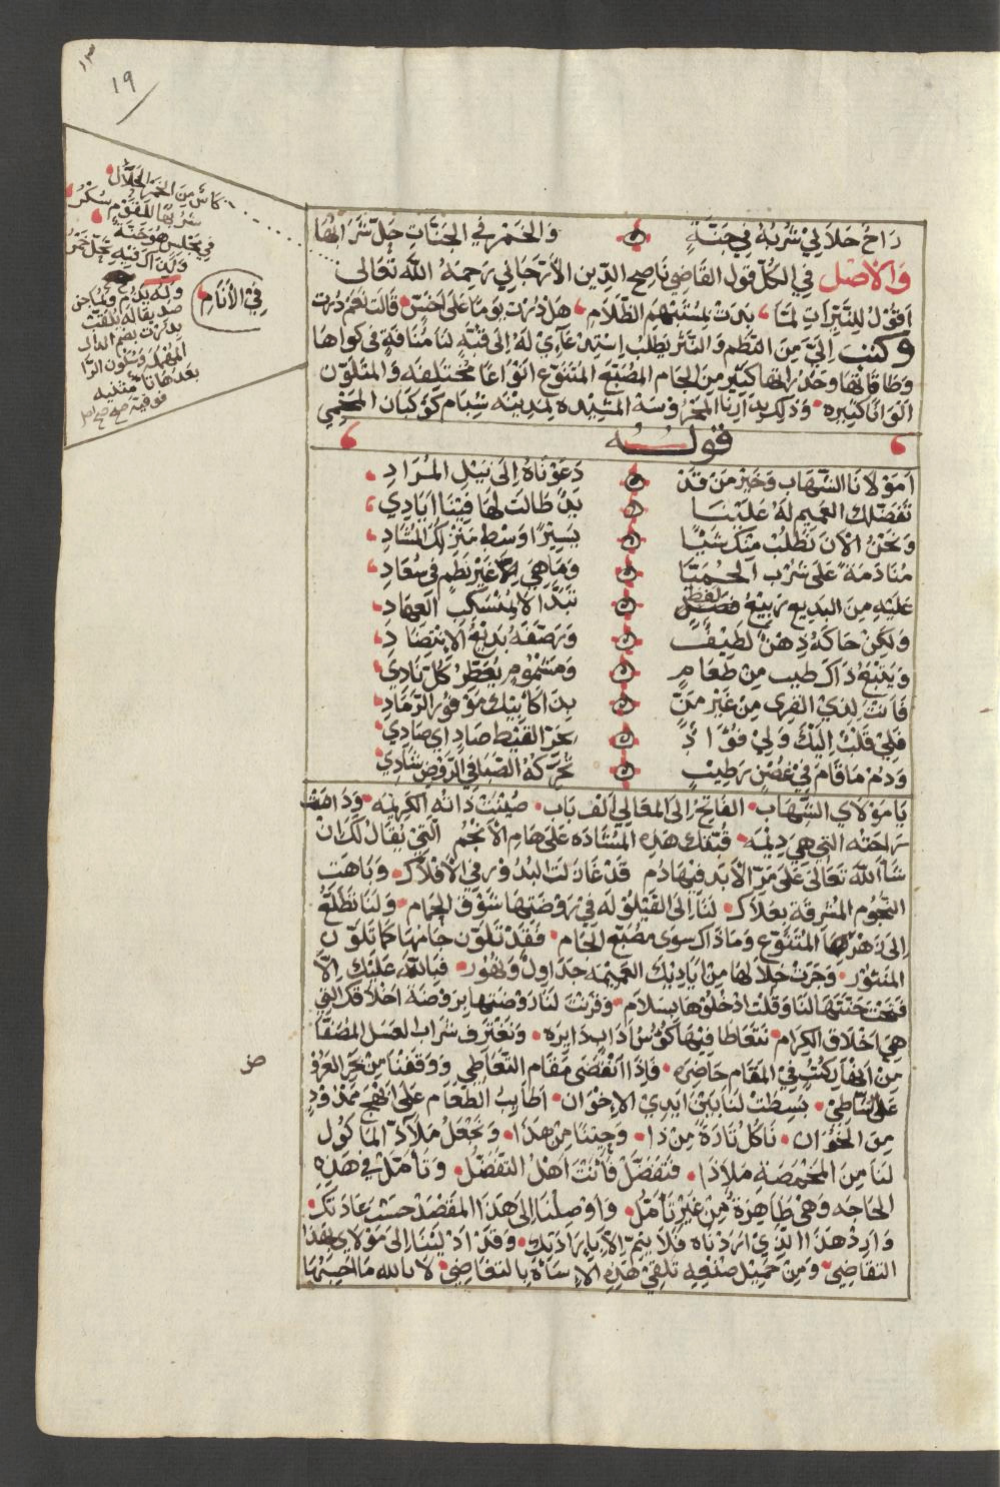 ١٩
كاس من الخمر الحلال
شربها للقوم سكر
في مجلس هو جنة
ولذاك فيه تحل خمر
في الأنام
بعدها تا مثنيه
فوقيه صح صح اصل
راح حلا لي شربه في جنة والخمر في الجنات حل شرابها
والاصل في الكل قول القاضي ناصح الدين الارجاني رحمه الله تعالى
اقول للنيرات لما بدت لمستبهم الظلام هل درت يوما على اخس قالت نعم درت
وكتب الي من النظم والنثر يطلب استدعآء له الى قبة لنا منافة في كواها
وطاقاتها وجدرانها كثير من الجام المصبغ المتنوع انواعا مختلفه والمتلون
الوانا كثيره وذلك بدارنا المحروسة المشيده لمدينه شبام كوكبان المحمي
قوله
امولانا الشهاب وخير من قد دعوناه الى نيل المراد
تفضلك العميم له علينا يد طالت لها فينا ايادي
ونحن الان نطلب منك شيا يسيرا وسط منزلك المشاد
منادمة على شرب الحميا وما هي غير نظم في سعاد
عليه من البديع ربيع لفظ تبدا لا لمنسكب العهاد
ولكن حاكه ذهن لطيف ورصفه بديع الاقتصاد
ويتبع ذاك طيب من طعام ومشموم يعطر كل نادي
فانت لذي القرى من غير من بدا كأبيك موفور الرماد
فلي قلب اليك ولي فؤاد بحر القيظ صاد اي صادي
ودم ما قام في غصن رطيب تحركه الصبا في الروض شادي
يا مولاي الشهاب الفاتح الى المعالي الف باب صينت ذاته الكريمه ودامت
راحته التي هي ديمه قبتك هذه المشاده على هام الانجم التي نقال لك ان
شا الله تعالى على مر الابد فيها دم قد غارت البدور في الافلاك وباهت
النجوم المشرقة بعلاك لنا الى القيلوله في روضتها شوق الحمام ولنا تطلع
الى زهرها المتنوع وما ذاك سوى مصبغ الجام فقد تلون جامها كما تلون
المنثور وجرت خلالها من اياديك العميمه جداول ونهور فبالله عليك الا
فتحت جنتها لنا وقلت ادخلوها بسلام وقرنت لنا روضتها بروضة اخلاقك التي
هي اخلاق الكرام نتعاطا فيها كؤس اداب دايره ونغترف شراب العسل المصفا
من انهار كتب في المقام حاضره فاذا انقضى مقام التعاطي ووقفنا من بحر العروض
على شاطي بسطت لنا بين ايدي الاخوان اطايب الطعام على ابهج ممدود
من الخوان ناكل تارة من ذا وحينا من هذا ونجعل ملاذ الماكول
لنا من المخمصة ملاذا فتفضل فانت اهل التفضل وتامل في هذه
الحاجه وهي ظاهرة من غير تأمل واوصلنا الى هذا المقصد حسب عادتك
وارد هذا الذي اردناه فلا يتم الا بارادتك وقد ادلينا الى مولاي بهذا
التقاضي ومن جميل صنعه تلقي هذه الاساة بالتغاضي لا بالله ما احسنها